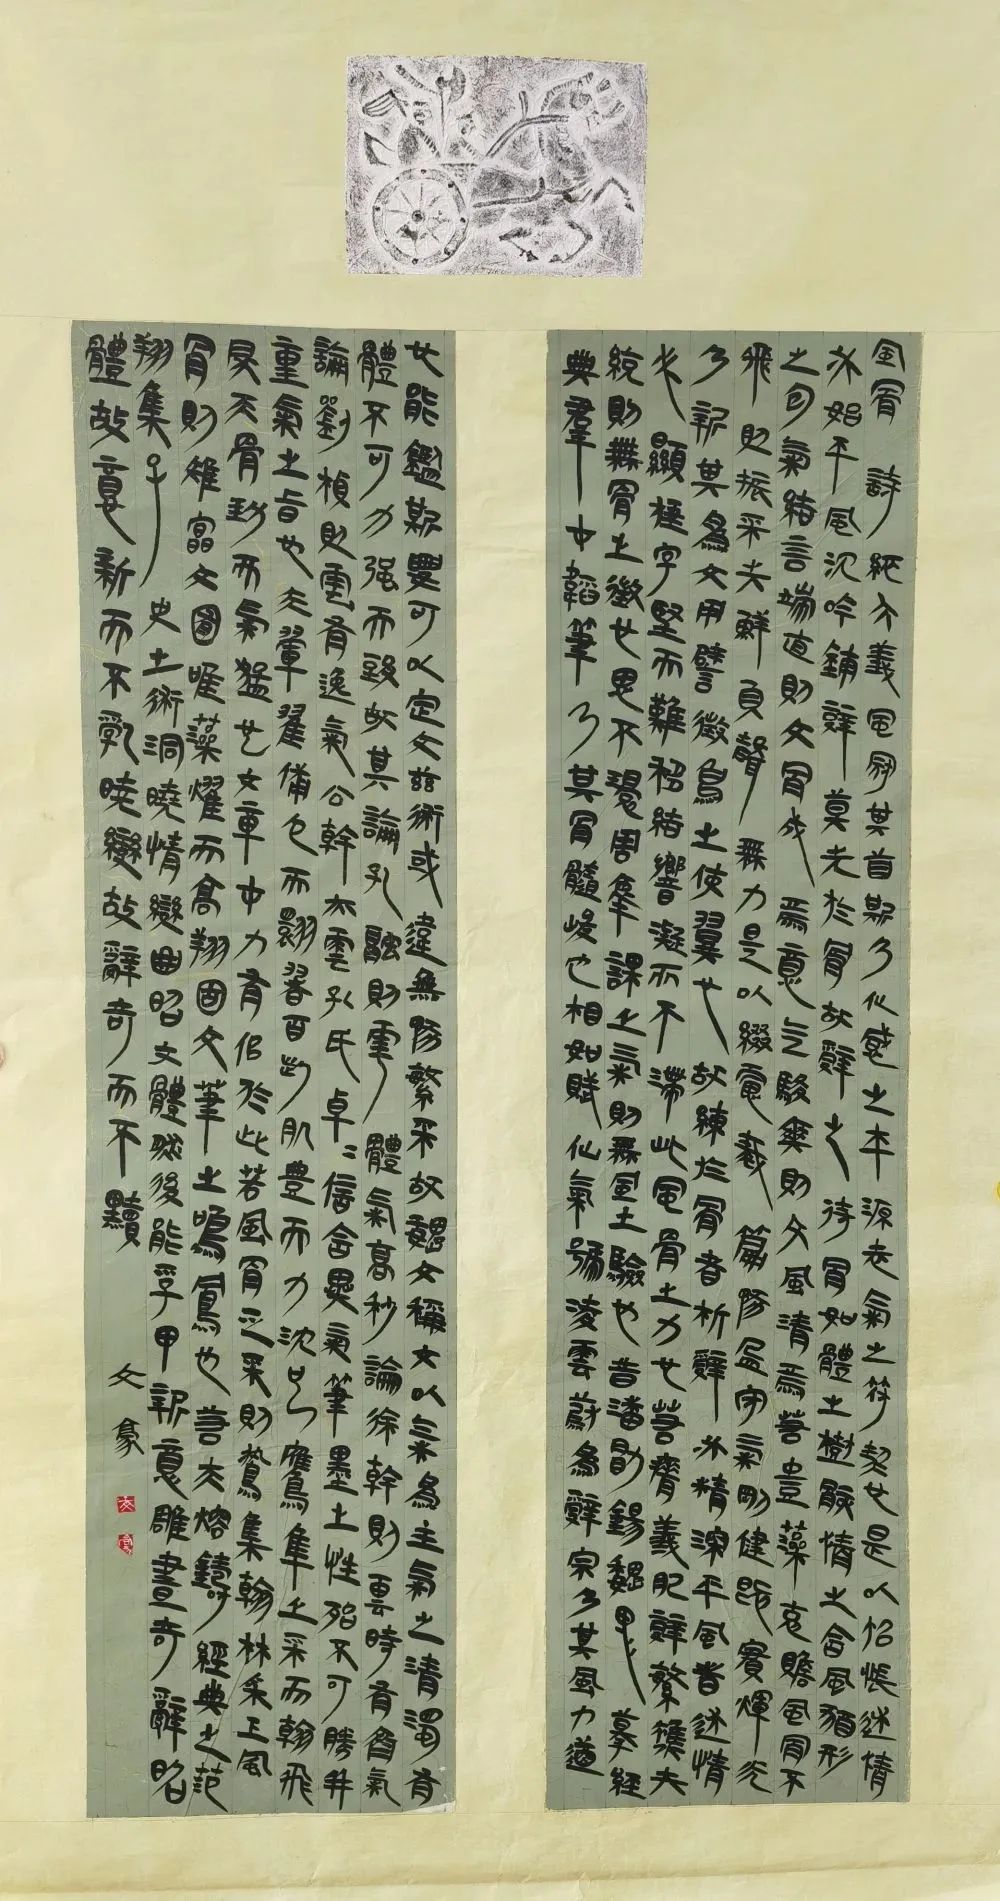 風骨 詩總六義風冠其首斯乃化感之本源志氣之符契也是以怊悵述情
必始乎風沈吟鋪辭莫先於骨故辭之待骨如體之樹骸情之含風猶形
之包氣結言端直則文骨成焉意氣駿爽則文風清焉若豐藻克贍風骨不
飛則振采失鮮負聲無力是以綴慮裁篇務盈守氣剛健既實輝光
乃新其為文用譬徵鳥之使翼也故練於骨者析辭必精深乎風者述情
必顯捶字堅而難移結響凝而不滯此風骨之力也若瘠義肥辭繁雜失
統則無骨之徵也思不環周牽課乏氣則無風之驗也昔潘勖錫魏思摹經
典羣才韜筆乃其骨髓峻也相如賦仙氣號凌雲蔚為辭宗乃其風力遒
也能鑑斯要可以定文茲術或違無務繁采故魏文稱文以氣為主氣之清濁有
體不可力强而致故其論孔融則雲體氣高妙論徐幹則雲時有齊氣
論劉楨則雲有逸氣公幹亦雲孔氏卓〻信含異氣筆墨之性殆不可勝并
重氣之旨也夫翬翟備色而翾翥百步肌豐而力沈也鷹隼乏采而翰飛
戾天骨勁而氣猛也文章才力有似於此若風骨乏采則鷙集翰林采乏風
骨則雉竄文囿唯藻耀而高翔固文筆之鳴鳳也若夫熔鑄經典之范
翔集子史之術洞曉情變曲昭文體然後能孚甲新意雕畫奇辭昭
體故意新而不亂曉變故辭奇而不黷
文豪
文
豪